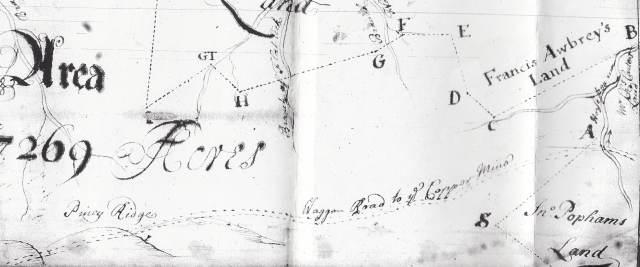 Land
Area
7269 Acres
GT
H
G
F
E
D
C
B
A
S
I
Francis Awbrey's
Land
Piney Ridge
Waggon Road to ye Copper Mine
Jno Pophams
Land